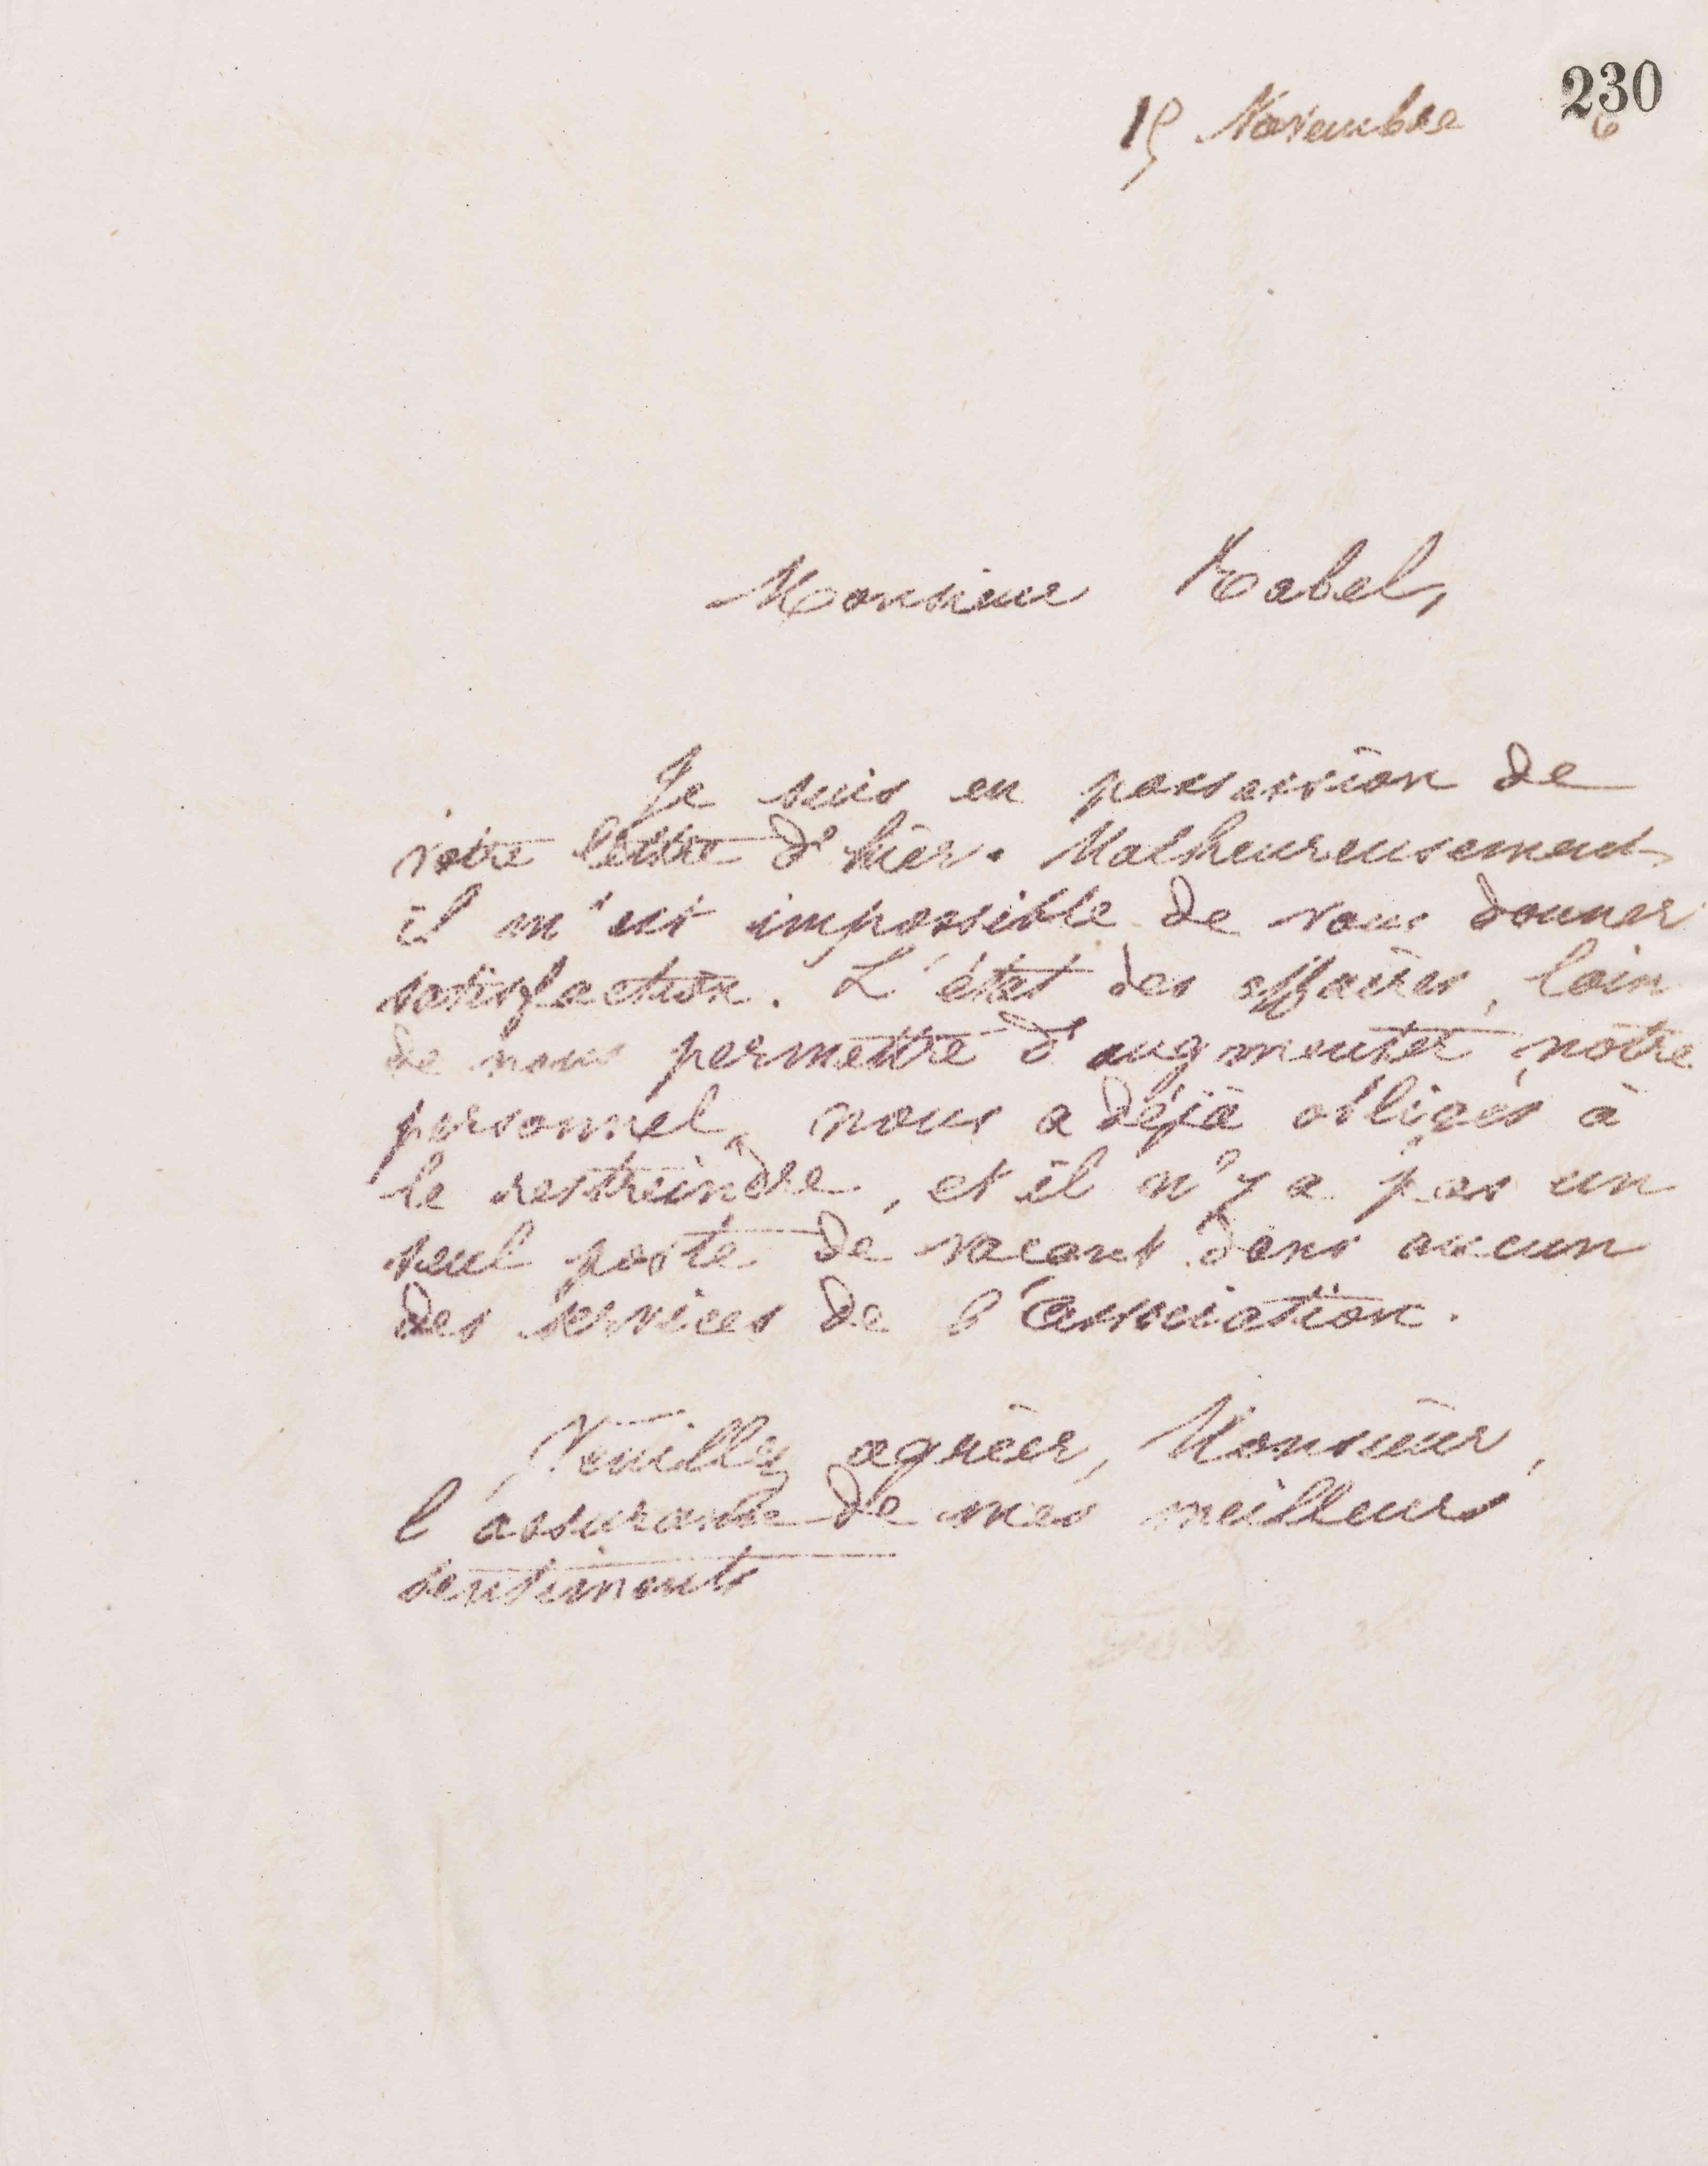 230
15 Novembre 6
Monsieur Rabel,
Je suis en possession de
votre lettre d'hier. Malheureusement
il m'est impossible de vous donner
satisfaction. L'état des affaires, loin
de nous permettre d'augmenter notre
personnel, nous a déjà obligés à
le restreindre, et il n'y a pas un
seul poste de vacant dans aucun
des services de l'association.
Veuillez agréer, Monsieur,
l'assurance de mes meilleurs
sentiments